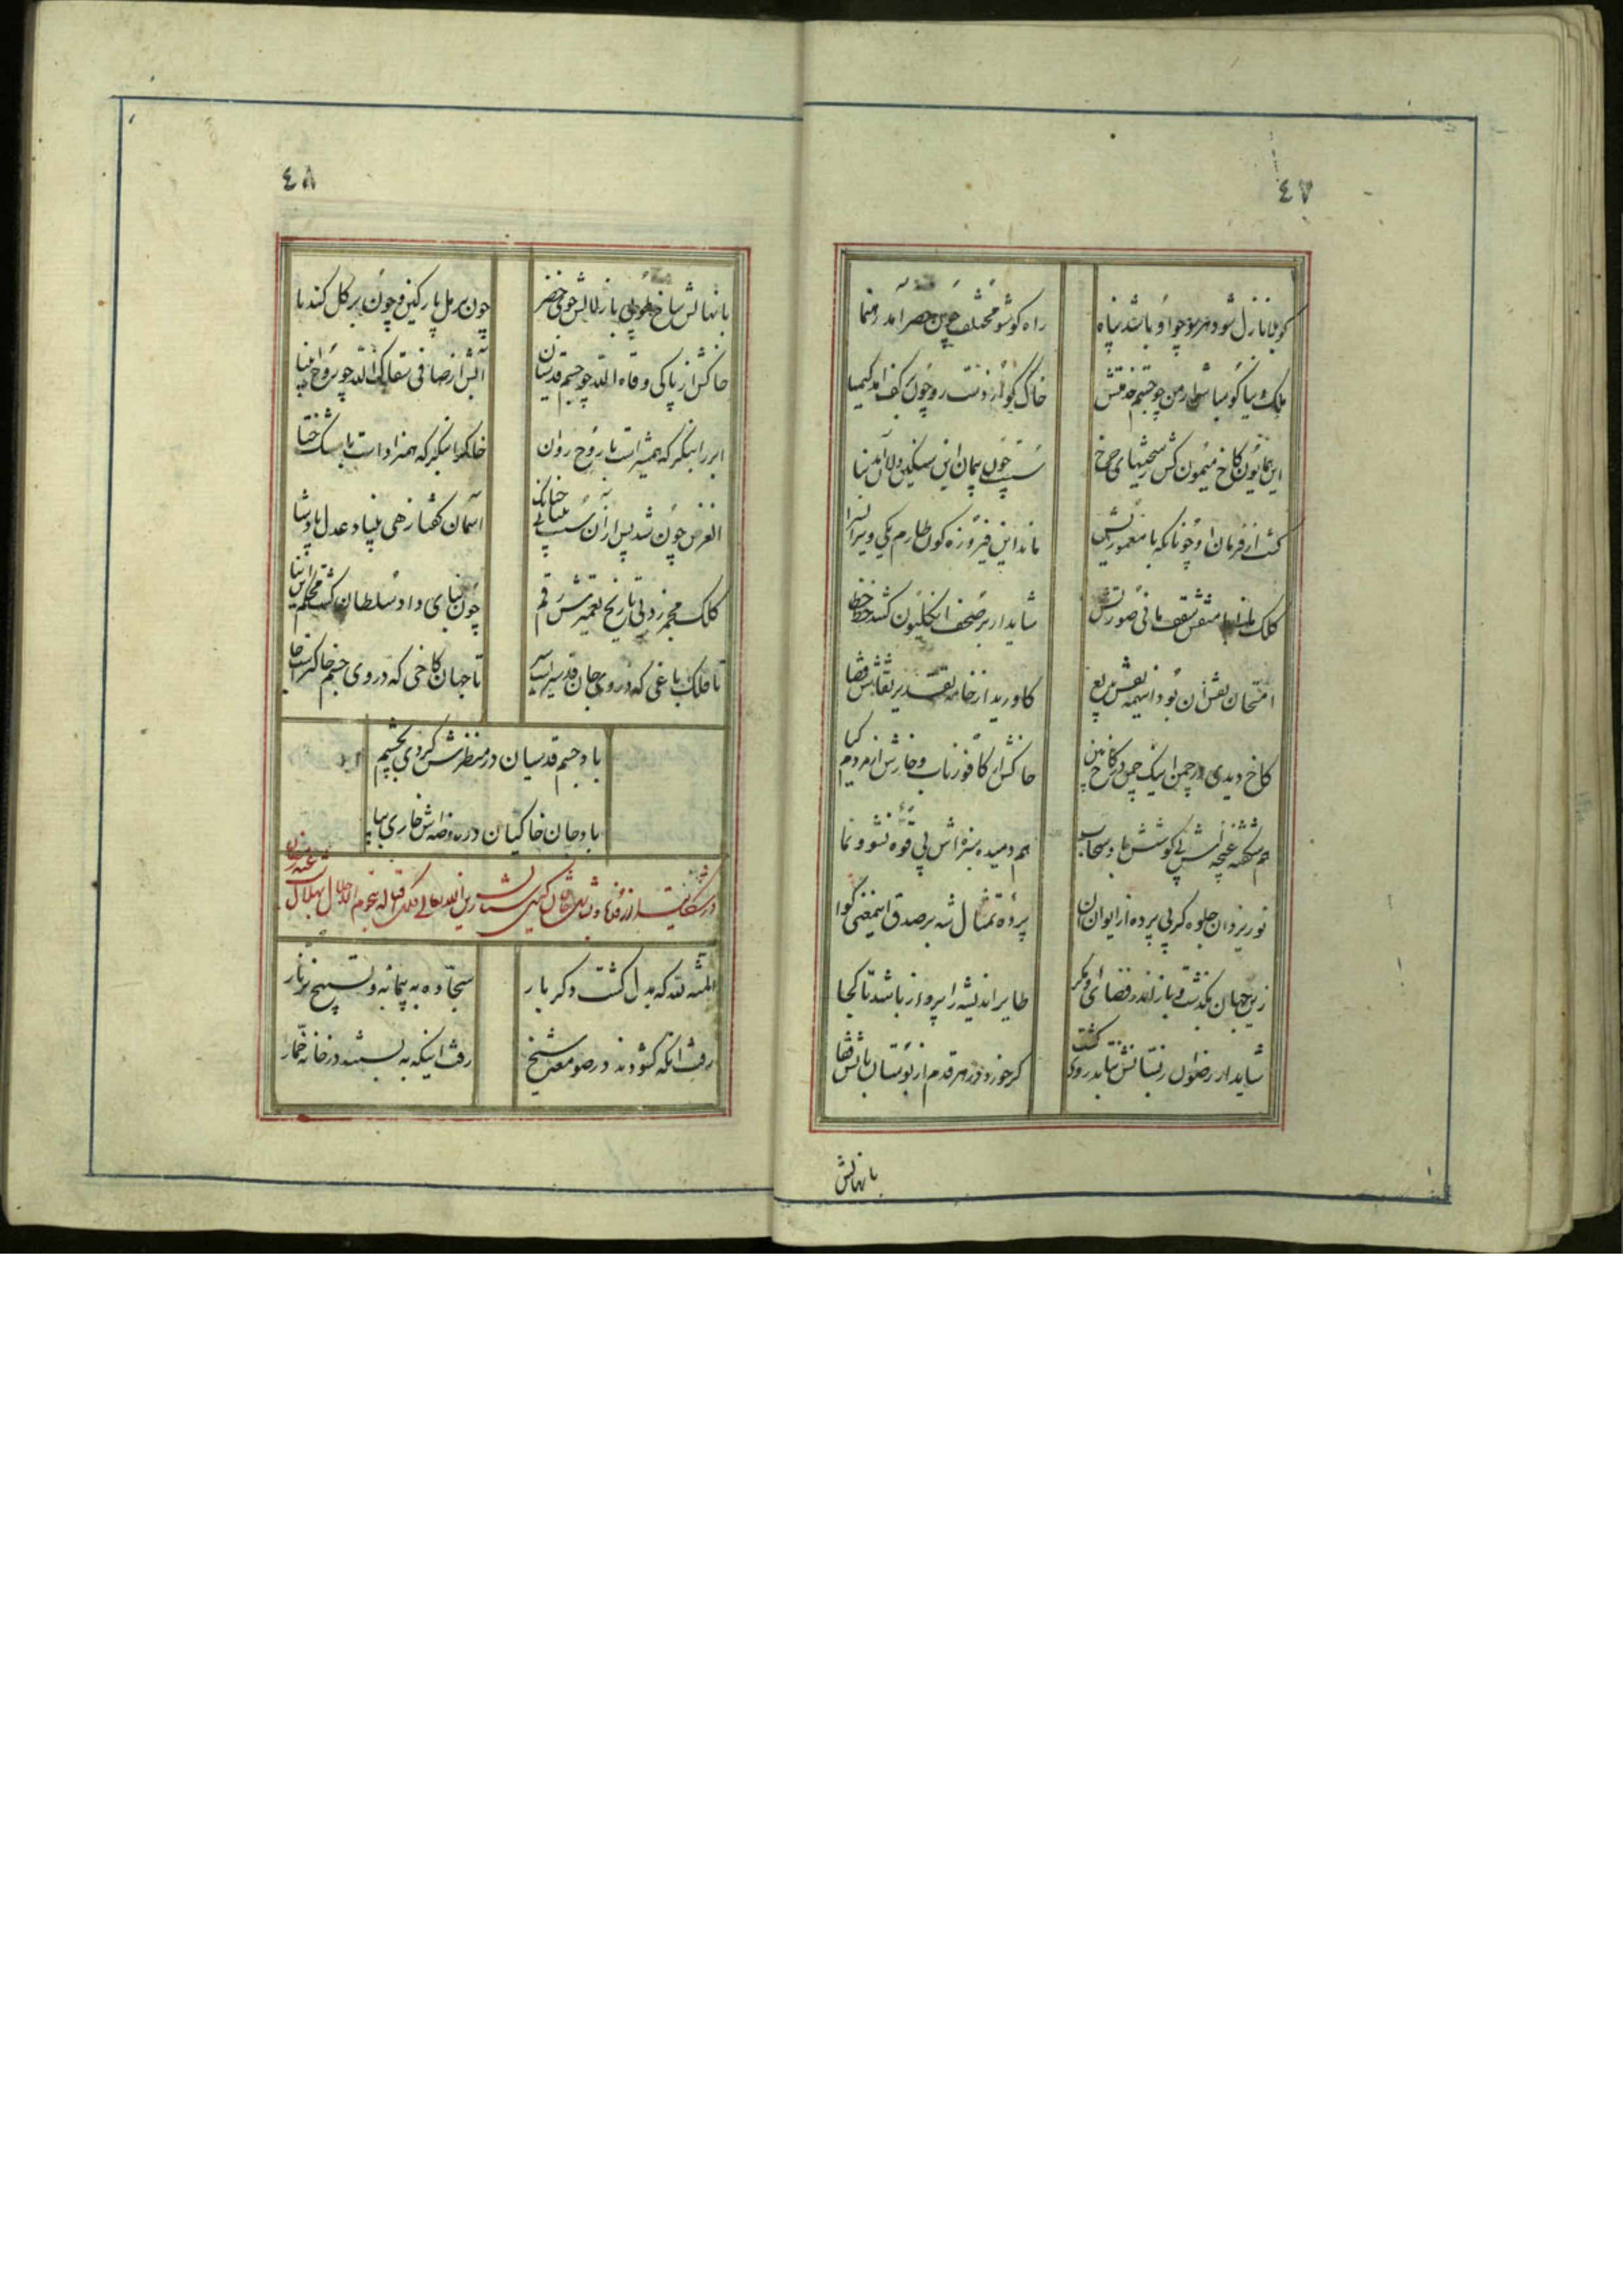 ٤٧
کو بلا نازل شود هر سو چو او باشد پناه
راه کو شو مختلف چون خضر آمد رهنما
ملک دنیا گو مباش ار من چو جستم خدمتش
خاک گو از دست رو چون بکف آمد کیمیا
این همایون کاخ میمون کش ز سختیهای چرخ
سست چون پیمان این سنگین دلان آمد بنا
گشت از فرمان او چونانکه با معموریش
ماند این فیروزه گون طارم یکی ویران سرا
کلک مانی با منقش سقف مانی صورتش
شاید ار بر صحف انگلیون کشد خط خطا
امتحان نقش آن بود اینهمه نقش بدیع
کاورید از خامه تقدیر نقاش قضا
کاخ دیدی در چمن اینک چمن در کاخ بین
خاکش از کافور ناب و خارش از مردم گیا
هم شکفته غنچه‌اش بی کوشش باد و سحاب
هم دمیده سبزه‌اش بی قوه نشو و نما
نور یزدان جلوه گر بی پرده از ایوان آن
پرده تمثال شه بر صدق این معنی گوا
زین جهان بگذشت و باز اندر فضای دیگر
طایر اندیشه را پرواز باشد تا کجا
شاید ار رضوان ز بستانش نتابد روی گشت
گر خورد در هر قدم از بوستانبانش قفا
بانهالش
٤٨
بانهالش شاخ طوبی با زلالش جوی خضر
چون بر مل پارگین و چون بر گل گندنا
خاکش از پاکی وقاه الله چو جسم قدسیان
آبش از صافی سقاک الله چو روح انبیا
ابر را بنگر که همشیر است با روح روان
خاک را بنگر که همزاد است با مشک ختا
الغرض چون شد پس از آن سست بنیانی چنانک
آسمان گفتا زهی بنیاد عدل پادشا
کلک مجمر زد پی تاریخ تعمیرش رقم
چون بنای داد سلطان گشت محکم این بنا
تا فلک باغی که در وی جان قدسی راست سیر
تا جهان کاخی که در وی جسم خاکی راست جا
باد جسم قدسیان در منظرش گردی بچشم
باد جان خاکیان در روضه‌اش خاری بپا
المنة لله که مبدل گشت دگر بار
سجاده به پیمانه و تسبیح بزنار
رفت آنکه گشودند در صومعه شیخ
رفت اینکه به بستند در خانه خمار